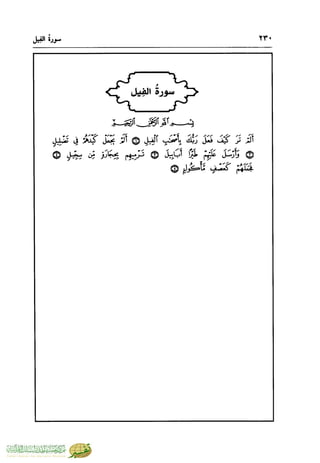 سورة الفيل
٢٣٠
سورة الفيل
بسم الله الرحمن الرحيم
ألم تر كيف فعل ربك بأصحب الفيل ۝ ألم يجعل كيدهم في تضليل
۝ وأرسل عليهم طيرا أبابيل ۝ ترميهم بحجارة من سجيل ۝
فجعلهم كعصف مأكول ۝
تفسير